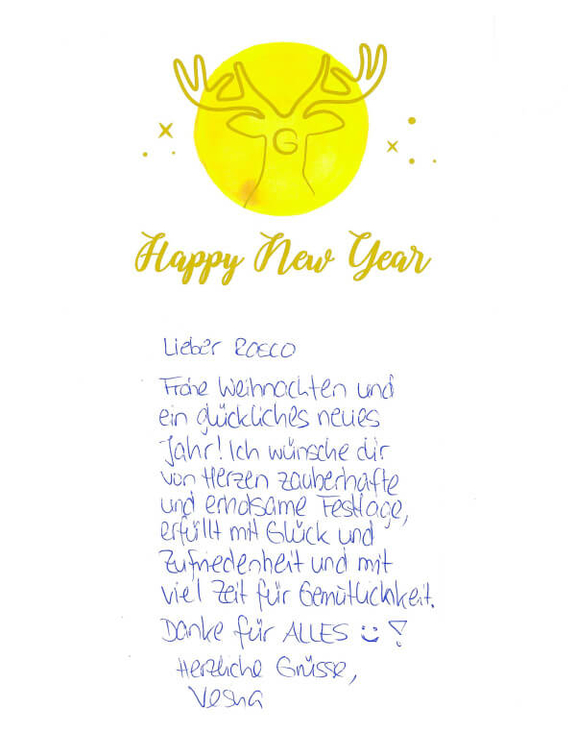 G
Happy New Year
Lieber ROCCO
Frohe Weihnachten und
ein glückliches neues
Jahr! Ich wünsche dir
von Herzen zauberhafte
und erholsame Festtage,
erfüllt mit Glück und
Zufriedenheit und mit
viel Zeit für Gemütlichkeit.
Danke für ALLES :) !
Herzliche Grüsse,
Vesna